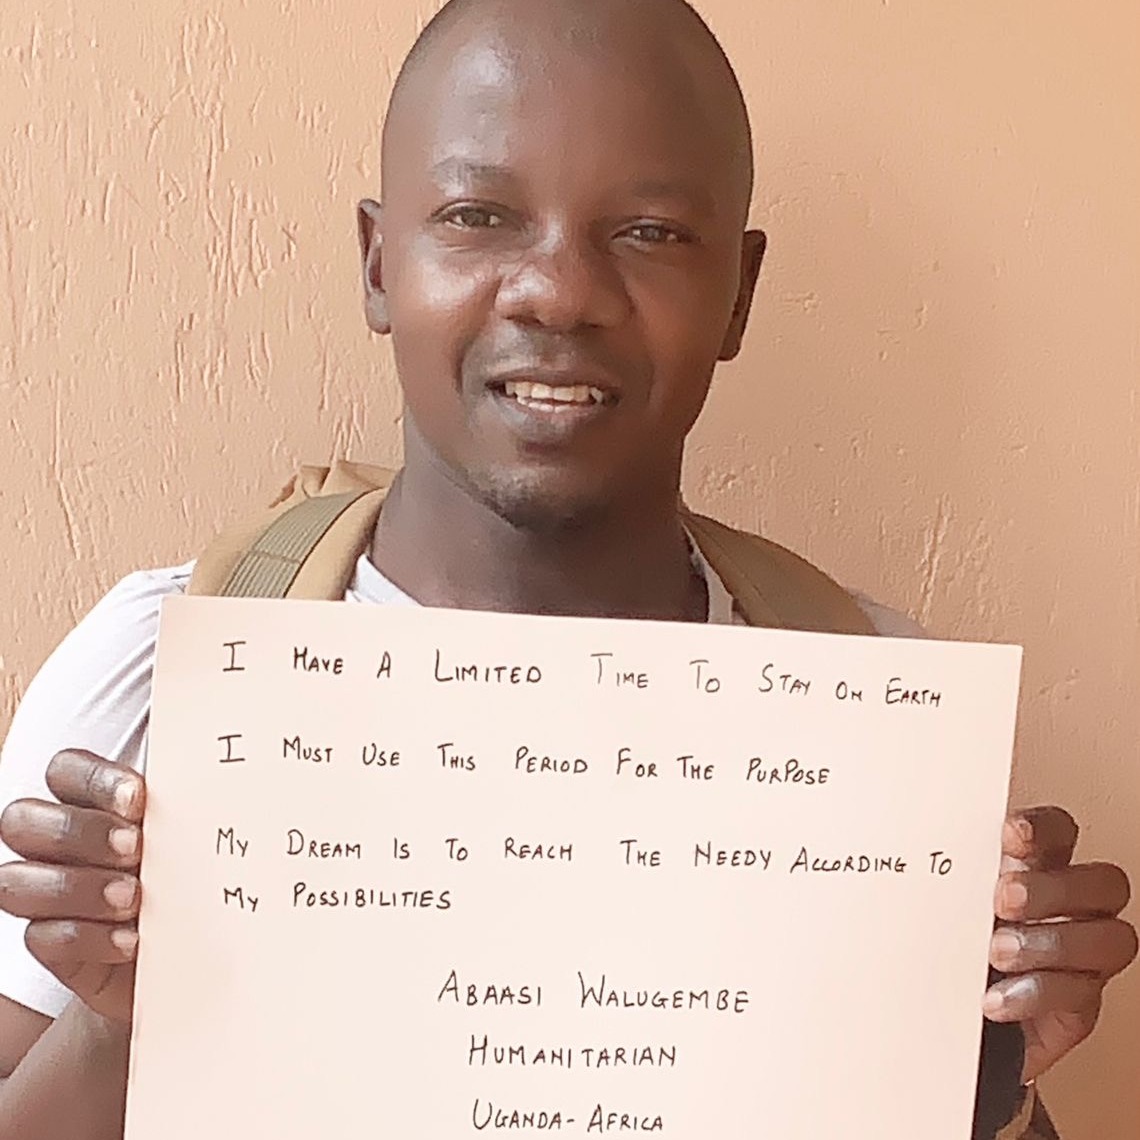 I HAVE A LIMITED TIME TO STAY ON EARTH
I MUST USE THIS PERIOD FOR THE PURPOSE
MY DREAM IS TO REACH THE NEEDY ACCORDING TO
MY POSSIBILITIES
ABAASI WALUGEMBE
HUMANITARIAN
UGANDA - AFRICA